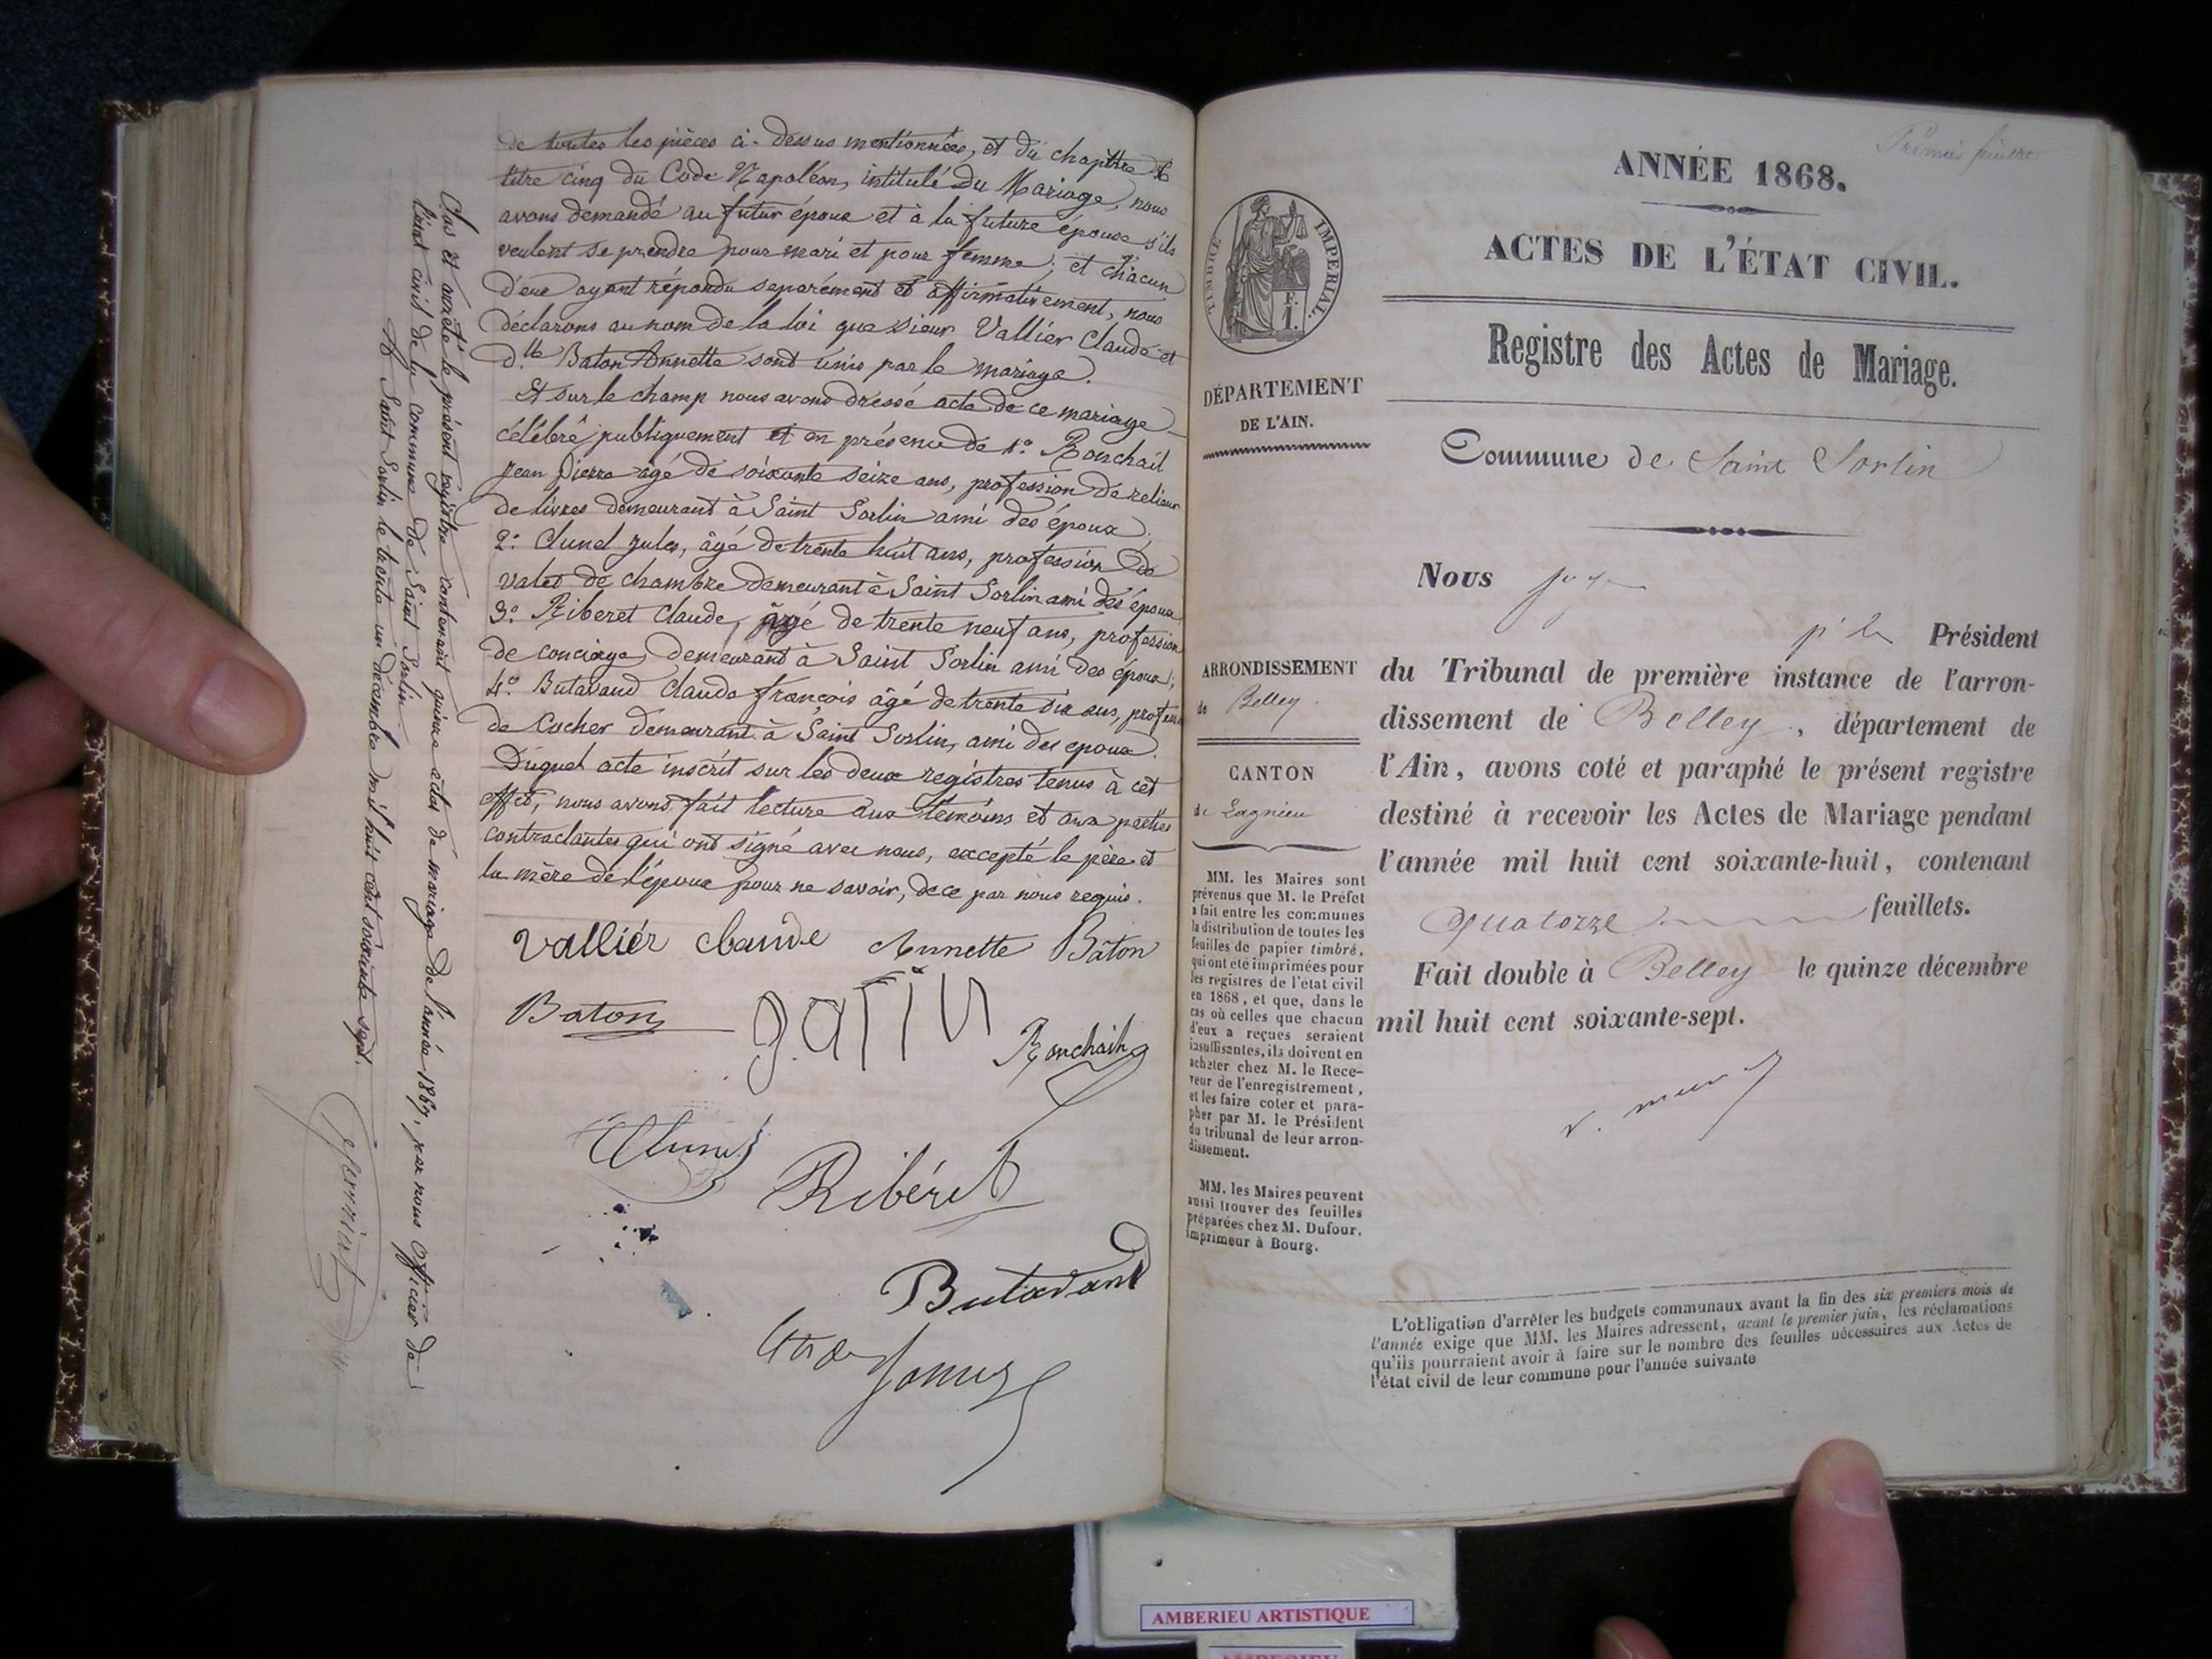 de toutes les pièces ci-dessus mentionnées, et du chapitre 6
titre cinq du Code Napoléon, intitulé Du Mariage, nous
avons demandé au futur époux et à la future épouse s'ils
veulent se prendre pour mari et pour femme; et chacun
d'eux ayant répondu separément et affirmativement, nous
déclarons au nom de la loi que sieur Vallier Claude et
dlle Baton Annette sont unis par le mariage.
Et sur le champ nous avons dressé acte de ce mariage
célébré publiquement et en présence de 1° Ronchail
Jean Pierre âgé de soixante seize ans, profession de relieur
de livres demeurant à Saint Sorlin ami des époux;
2° Clunel Jules, âgé de trente huit ans, profession de
valet de chambre demeurant à Saint Sorlin ami des époux
3° Riberet Claude, âgé de trente neuf ans, profession
de concierge, demeurant à Saint Sorlin ami des époux;
4° Butavand Claude françois âgé de trente six ans, profession
de Cocher demeurant à Saint Sorlin, ami des epoux.
Duquel acte inscrit sur les deux registres tenus à cet
effet, nous avons fait lecture aux témoins et aux parties
contractantes qui ont signé avec nous, excepté le père et
la mère de l'époux pour ne savoir, de ce par nous requis.
Vallier claude Annette Bâton
Baton gatin Ronchail
Clunel
Ribéret
Butavant
Clos et arrêté le présent registre contenant quinze actes de mariage de l'année 1867, par nous Officier de
l'état civil de la commune de Saint Sorlin
A Saint Sorlin le trente un décembre mil huit cent soixante sept.
ANNÉE 1868.
ACTES DE L'ÉTAT CIVIL.
Registre des Actes de Mariage.
TIMBRE IMPERIAL.
F.
1.
DÉPARTEMENT
DE L'AIN.
Commune de Saint Sorlin
Nous
pr le Président
ARRONDISSEMENT
de Belley
CANTON
de Lagnieu
du Tribunal de première instance de l'arron-
dissement de Belley, département de
l'Ain, avons coté et paraphé le présent registre
destiné à recevoir les Actes de Mariage pendant
l'année mil huit cent soixante-huit, contenant
Quatorze feuillets.
Fait double à Belley le quinze décembre
mil huit cent soixante-sept.
MM. les Maires sont
prévenus que M. le Préfet
a fait entre les communes
la distribution de toutes les
feuilles de papier timbré,
qui ont été imprimées pour
les registres de l'état civil
en 1868, et que, dans le
cas où celles que chacun
d'eux a reçues seraient
insuffisantes, ils doivent en
acheter chez M. le Rece-
veur de l'enregistrement,
et les faire coter et para-
pher par M. le Président
du tribunal de leur arron-
dissement.
MM. les Maires peuvent
aussi trouver des feuilles
préparées chez M. Dufour,
imprimeur à Bourg.
L'obligation d'arrêter les budgets communaux avant la fin des six premiers mois de
l'année exige que MM. les Maires adressent, avant le premier juin, les réclamations
qu'ils pourraient avoir à faire sur le nombre des feuilles nécessaires aux Actes de
l'état civil de leur commune pour l'année suivante
AMBERIEU ARTISTIQUE
AMBERIEU